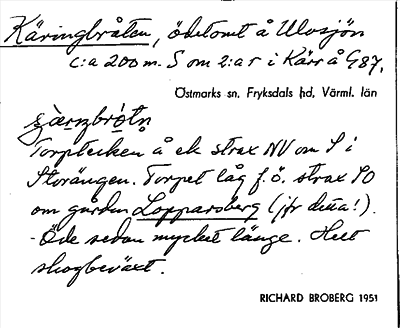 Käringbråten, ödetomt å Ulvsjön
c:a 200 m. S om 2:a r i Kärr å G 87.
Östmarks sn. Fryksdals hd, Värml. län
Torptecken å ek strax NV om S i
Storängen. Torpet låg f.ö. strax SO
om gården Lopparsberg (jfr detta!).
- Öde sedan mycket länge. Helt
skogbeväxt.
RICHARD BROBERG 1951